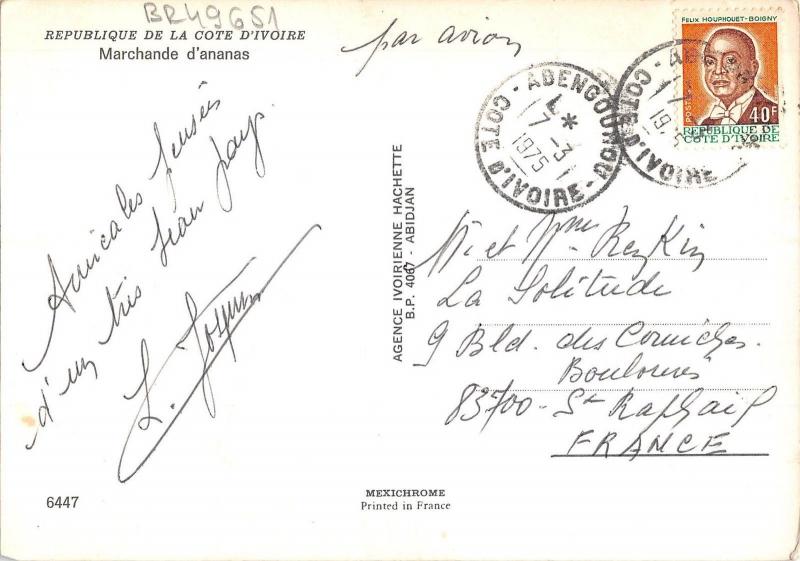 BR49651
REPUBLIQUE DE LA COTE D'IVOIRE
Marchande d'ananas
par avion
FELIX HOUPHOUET-BOIGNY
POSTES
40F
REPUBLIQUE DE
COTE D'IVOIRE
ADENGOUROU
7-3
1975
COTE D'IVOIRE
COTE D'IVOIRE
Amicales pensées
d'un très beau pays.
AGENCE IVOIRIENNE HACHETTE
B.P. 4067 - ABIDJAN
M. et Mme
La Solitude
9 Bld. des Corniches
Boulouris
83700 - St Raphaël
FRANCE
6447
MEXICHROME
Printed in France